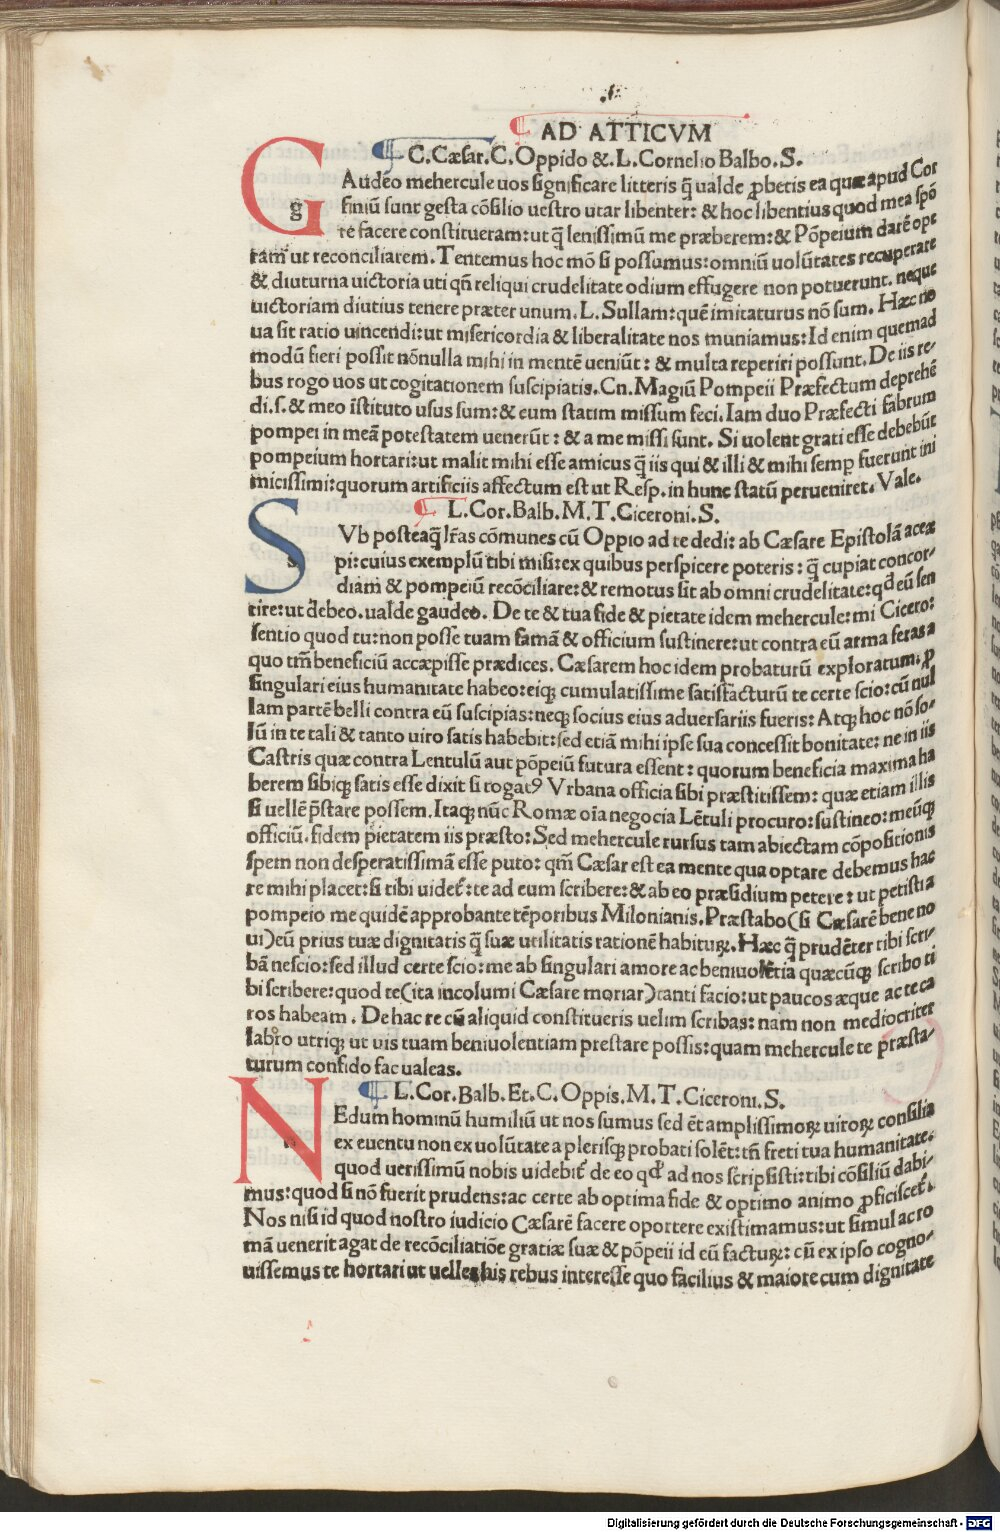 AD ATTICVM
C. Cæsar. C. Oppido &. L. Cornelio Balbo. S.
GAudeo mehercule uos significare litteris q̃ ualde ꝓbetis ea quæ apud Cor
finiũ sunt gesta cõsilio uestro utar libenter: & hoc libentius quod mea spõ
te facere constitueram: ut q̃ lenissimũ me præberem: & Põpeium darẽ ope
ram ut reconciliarem. Tentemus hoc mõ si possumus: omniũ uolũtates recuperare
& diuturna uictoria uti qñ reliqui crudelitate odium effugere non potuerunt. neque
uictoriam diutius tenere præter unum. L. Sullam: quẽ imitaturus nõ sum. Hæc no
ua sit ratio uincendi: ut misericordia & liberalitate nos muniamus: Id enim quemad
modũ fieri possit nõnulla mihi in mentẽ ueniũt: & multa reperiri possunt. De iis re-
bus rogo uos ut cogitationem suscipiatis. Cn. Magiũ Pompeii Præfectum deprehẽ
di. s. & meo ĩstituto usus sum: & eum statim missum feci. Iam duo Præfecti fabrum
pompei in meã potestatem uenerũt: & a me missi sunt. Si uolent grati esse debebũt
pompeium hortari: ut malit mihi esse amicus q̃ iis qui & illi & mihi semꝑ fuerunt ini
micissimi: quorum artificiis affectum est ut Resp. in hunc statũ perueniret. Vale.
L. Cor. Balb. M. T. Ciceroni. S.
SVb posteaq̃ lr̃as cõmunes cũ Oppio ad te dedi: ab Cæsare Epistolã aceæ
pi: cuius exemplũ tibi misi: ex quibus perspicere poteris: q̃ cupiat concor-
diam & pompeiũ recõciliare: & remotus sit ab omni crudelitate: qd̕ eũ sen
tire: ut debeo. ualde gaudeo. De te & tua fide & pietate idem mehercule: mi Cicero:
sentio quod tu: non posse tuam famã & officium sustinere: ut contra eũ arma feras a
quo tm̃ beneficiũ accæpisse prædices. Cæsarem hoc idem probaturũ exploratum: ꝓ
singulari eius humanitate habeo: eiqꝫ cumulatissime satisfacturũ te certe scio: cũ nul
lam partẽ belli contra eũ suscipias: neqꝫ socius eius aduersariis fueris: Atqꝫ hoc nõ so-
lũ in te tali & tanto uiro satis habebit: sed etiã mihi ipse sua concessit bonitate: ne in iis
Castris quæ contra Lentulũ aut põpeiũ futura essent: quorum beneficia maxima ha
berem sibiqꝫ satis esse dixit si togatꝰ Vrbana officia sibi præstitissem: quæ etiam illis
si uellẽ p̃stare possem. Itaqꝫ nũc Romæ oĩa negocia Lẽtuli procuro: sustineo: meũqꝫ
officiũ. fidem pietatem iis præsto: Sed mehercule rursus tam abiectam cõpositionis
spem non desperatissimã esse puto: qm̃ Cæsar est ea mente qua optare debemus hac
re mihi placet: si tibi uidet̃: te ad eum scribere: & ab eo præsidium petere: ut petisti a
pompeio me quidẽ approbante tẽporibus Milonianis. Præstabo (si Cæsarẽ bene no
ui) eũ prius tuæ dignitatis q̃ suæ utilitatis rationẽ habituꝝ. Hæc q̃ prudẽter tibi scri-
bã nescio: sed illud certe scio: me ab singulari amore ac beniuolẽtia quæcũqꝫ scribo ti
bi scribere: quod te (ita incolumi Cæsare moriar) tanti facio: ut paucos æque ac te ca
ros habeam. De hac re cũ aliquid constitueris uelim scribas: nam non mediocriter
labro utriqꝫ ut uis tuam beniuolentiam prestare possis: quam mehercule te præsta-
turum confido fac ualeas.
L. Cor. Balb. Et. C. Oppis. M. T. Ciceroni. S.
NEdum hominũ humiliũ ut nos sumus sed ẽt amplissimoꝝ uiroꝝ consilia
ex euentu non ex uolũtate a plerisqꝫ probati solẽt: tñ freti tua humanitate.
quod uerissimũ nobis uidebit̃ de eo qd̕ ad nos scripsisti: tibi cõsiliũ dabi-
mus: quod si nõ fuerit prudens: ac certe ab optima fide & optimo animo ꝓficiscet̃.
Nos nisi id quod nostro iudicio Cæsarẽ facere oportere existimamus: ut simul ac ro
mã uenerit agat de recõciliatiõe gratiæ suæ & põpeii id eũ factuꝝ: cũ ex ipso cogno-
uissemus te hortari ut uelles his rebus interesse quo facilius & maiore cum dignitate
Digitalisierung gefördert durch die Deutsche Forschungsgemeinschaft - DFG